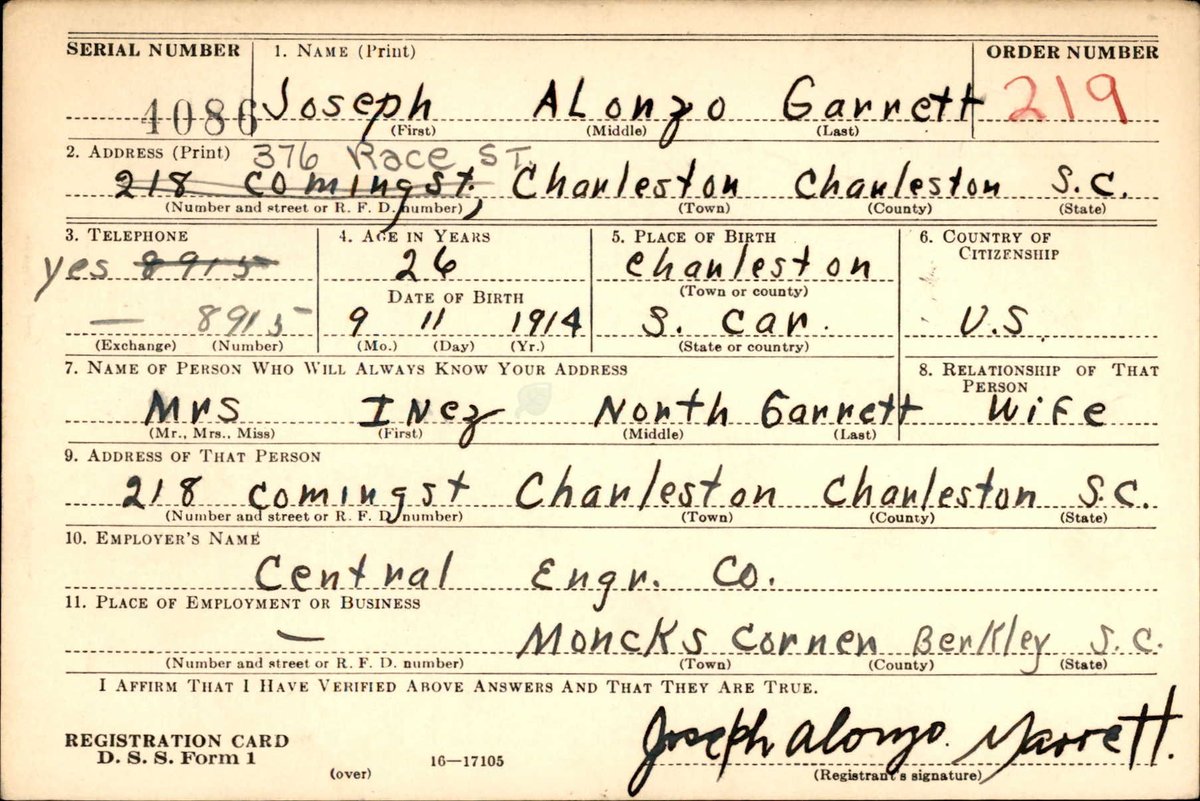 SERIAL NUMBER 1. NAME (Print) ORDER NUMBER
4086 Joseph ALonzo Garrett 219
(First) (Middle) (Last)
2. ADDRESS (Print) 376 Race ST.
218 Coming st., Charleston Charleston S.C.
(Number and street or R. F. D. number) (Town) (County) (State)
3. TELEPHONE 4. AGE IN YEARS 5. PLACE OF BIRTH 6. COUNTRY OF CITIZENSHIP
yes 8915 26 Charleston
DATE OF BIRTH (Town or county)
— 8915 9 11 1914 S. Car. U.S.
(Exchange) (Number) (Mo.) (Day) (Yr.) (State or country)
7. NAME OF PERSON WHO WILL ALWAYS KNOW YOUR ADDRESS 8. RELATIONSHIP OF THAT PERSON
Mrs INez North Garrett Wife
(Mr., Mrs., Miss) (First) (Middle) (Last)
9. ADDRESS OF THAT PERSON
218 Coming st Charleston Charleston S.C.
(Number and street or R. F. D. number) (Town) (County) (State)
10. EMPLOYER'S NAME
Central Engr. Co.
11. PLACE OF EMPLOYMENT OR BUSINESS
— Moncks Corner Berkley S.C.
(Number and street or R. F. D. number) (Town) (County) (State)
I AFFIRM THAT I HAVE VERIFIED ABOVE ANSWERS AND THAT THEY ARE TRUE.
Joseph Alonzo Garrett.
REGISTRATION CARD
D. S. S. Form 1 (over) 16—17105 (Registrant's signature)